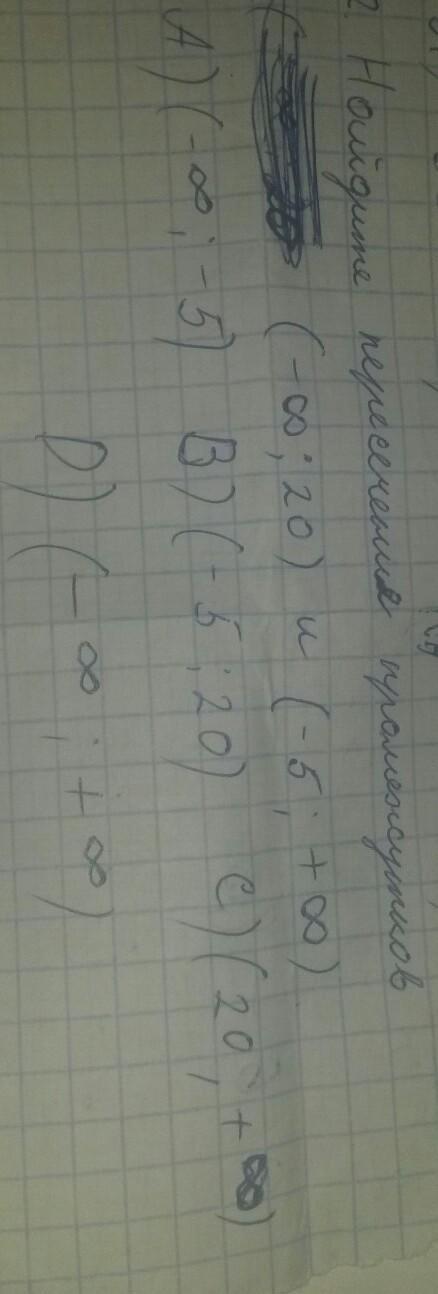 2. Найдите пересечения промежутков
(-∞; 20) и (-5; +∞)
A) (-∞; -5) B) (-5; 20) C) (20; +∞)
D) (-∞; +∞)